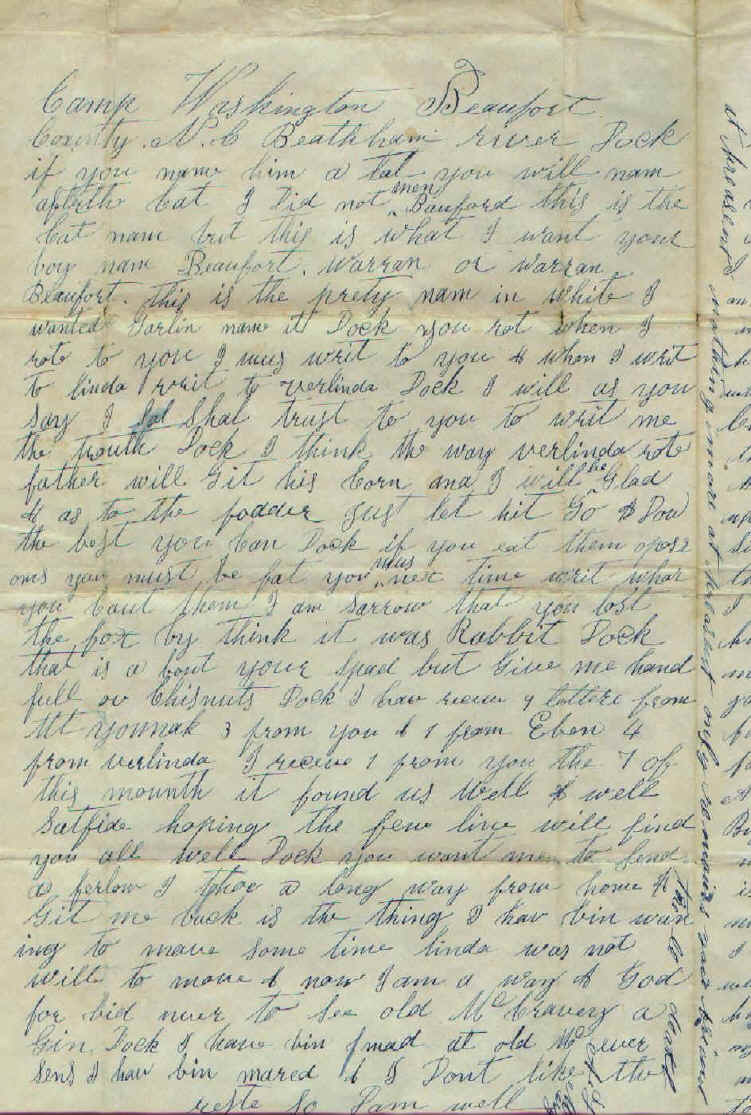 Camp Washington Beaufort
County. N. C Beatkham river Dock
if you name him a tal you will nam
afterth Cat I Did not men Bauford this is the
Cat nam but this is what I want your
boy nam Beaufort. Warran or Warran
Beaufort. this is the pretty nam in white I
wanted Garlin name it Dock you rot when I
rote to you I mus writ to you & when I writ
to linda writ to verlinda Dock I will as you
say I Sal Shal trust to you to writ me
the trouth Dock I think the way verlinda rote
father will Git his Corn and I will be Glad
& as to the fodder Just let hit Go & Dow
the best you Can Dock if you eat them
oms you must be fat you mus nex time writ whar
you Caut them I am Sarrow that you lost
the fox by think it was Rabbit Dock
that is a bout your Spad but Give me hand
full ov Chisnuts Dock I hav receve 9 lettere from
Mt younak 3 from you & 1 from Eben 4
from verlinda I receive 1 from you the 7 of
this mounth it found us Well & well
Satfide hoping the few line will find
you all well Dock you want me to Send
as ferlow I thoe a long way from home &
Git me back is the thing I hav bin wan
ing to move Some time linda was not
will to move & now I am a way & God
for bid never to See old Mc Cravery a
Gin Dock I have bin fmad at old Mc ever
Sens I hav bin mared & I Dont like the
reste So I am well
at preasent
nothing more at preasent only remains your friend